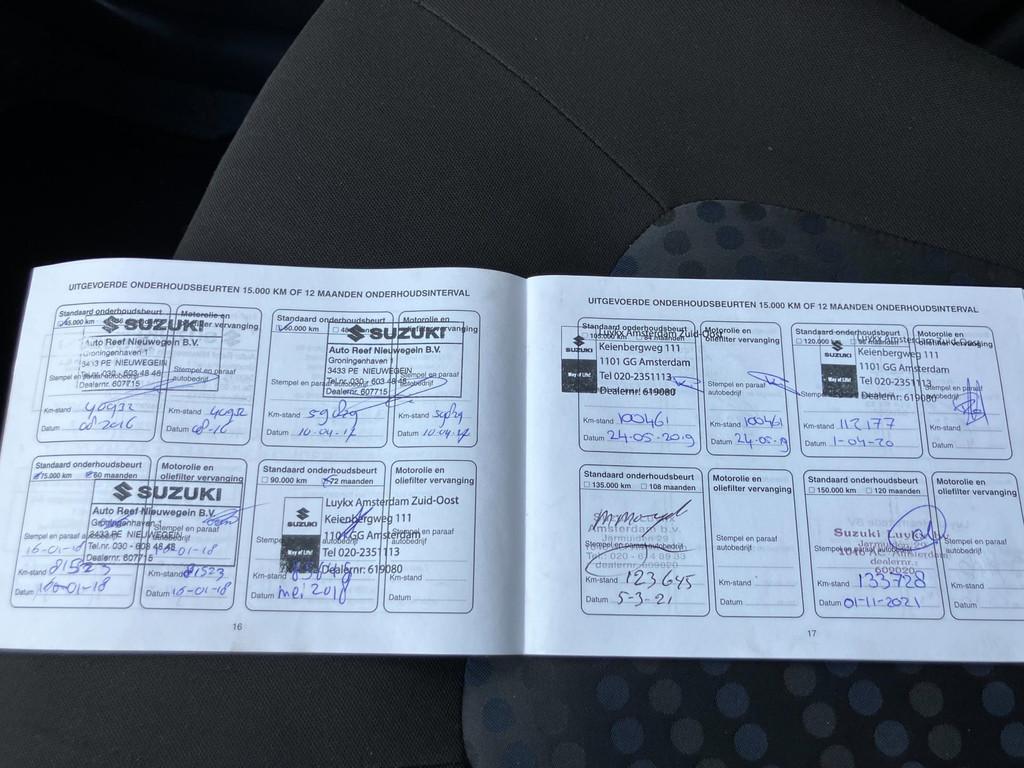 UITGEVOERDE ONDERHOUDSBEURTEN 15.000 KM OF 12 MAANDEN ONDERHOUDSINTERVAL
Standaard onderhoudsbeurt
45.000 km
Motorolie en
oliefilter vervanging
SUZUKI
Auto Reef Nieuwegein B.V.
Groningenhaven 1
3433 PE NIEUWEGEIN
Tel.nr. 030 - 603 48 48
Dealernr. 607715
Stempel en paraaf
autobedrijf
Km-stand 40932
Km-stand 40932
Datum 08-2016
Datum 08-16
Standaard onderhoudsbeurt
60.000 km
Motorolie en
oliefilter vervanging
SUZUKI
Auto Reef Nieuwegein B.V.
Groningenhaven 1
3433 PE NIEUWEGEIN
Tel.nr. 030 - 603 48 48
Dealernr. 607715
Stempel en paraaf
autobedrijf
Km-stand 59829
Km-stand
Datum 10-04-17
Datum 10-04-17
Standaard onderhoudsbeurt
75.000 km 60 maanden
Motorolie en
oliefilter vervanging
SUZUKI
Auto Reef Nieuwegein B.V.
Groningenhaven 1
3433 PE NIEUWEGEIN
Tel.nr. 030 - 603 48 48
Dealernr. 607715
Stempel en paraaf
autobedrijf
16-01-18
Km-stand 81523
Km-stand 81523
Datum 16-01-18
Datum 16-01-18
Standaard onderhoudsbeurt
90.000 km 72 maanden
Motorolie en
oliefilter vervanging
SUZUKI
Way of Life!
Luykx Amsterdam Zuid-Oost
Keienbergweg 111
1101 GG Amsterdam
Tel 020-2351113
Dealernr: 619080
Stempel en paraaf
autobedrijf
Km-stand
Km-stand
Datum mei 2018
Datum
16
UITGEVOERDE ONDERHOUDSBEURTEN 15.000 KM OF 12 MAANDEN ONDERHOUDSINTERVAL
Standaard onderhoudsbeurt
105.000 km 84 maanden
Motorolie en
oliefilter vervanging
SUZUKI
Way of Life!
Luykx Amsterdam Zuid-Oost
Keienbergweg 111
1101 GG Amsterdam
Tel 020-2351113
Dealernr: 619080
Stempel en paraaf
autobedrijf
Km-stand 100461
Km-stand 100461
Datum 24-05-2019
Datum 24-05-19
Standaard onderhoudsbeurt
120.000 km 96 maanden
Motorolie en
oliefilter vervanging
SUZUKI
Way of Life!
Luykx Amsterdam Zuid-Oost
Keienbergweg 111
1101 GG Amsterdam
Tel 020-2351113
Dealernr: 619080
Stempel en paraaf
autobedrijf
Km-stand 112177
Km-stand
Datum 1-04-20
Datum
Standaard onderhoudsbeurt
135.000 km 108 maanden
Motorolie en
oliefilter vervanging
Amsterdam b.v.
Jarmuiden 29
Stempel en paraaf autobedrijf
dealernr.: 609020
Stempel en paraaf
autobedrijf
Km-stand 123645
Km-stand
Datum 5-3-21
Datum
Standaard onderhoudsbeurt
150.000 km 120 maanden
Motorolie en
oliefilter vervanging
Suzuki Luykx
Jarmuiden 29
1046 AC Amsterdam
dealernr.:
609020
Stempel en paraaf
autobedrijf
Km-stand 133728
Km-stand
Datum 01-11-2021
Datum
17